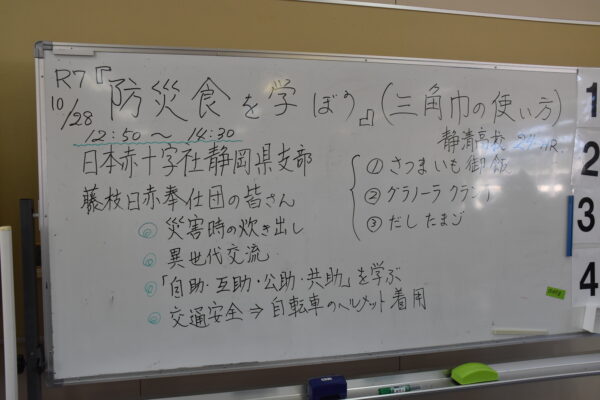 R7『防災食を学ぼう』(三角巾の使い方)
10/28
12:50 〜 14:30
静清高校
日本赤十字社静岡県支部
藤枝日赤奉仕団の皆さん
◎ 災害時の炊き出し
◎ 異世代交流
◎「自助・互助・公助・共助」を学ぶ
◎ 交通安全 ⇒ 自転車のヘルメット着用
① さつまいも御飯
② グラノーラ
③ だしたまご
1
2
3
4